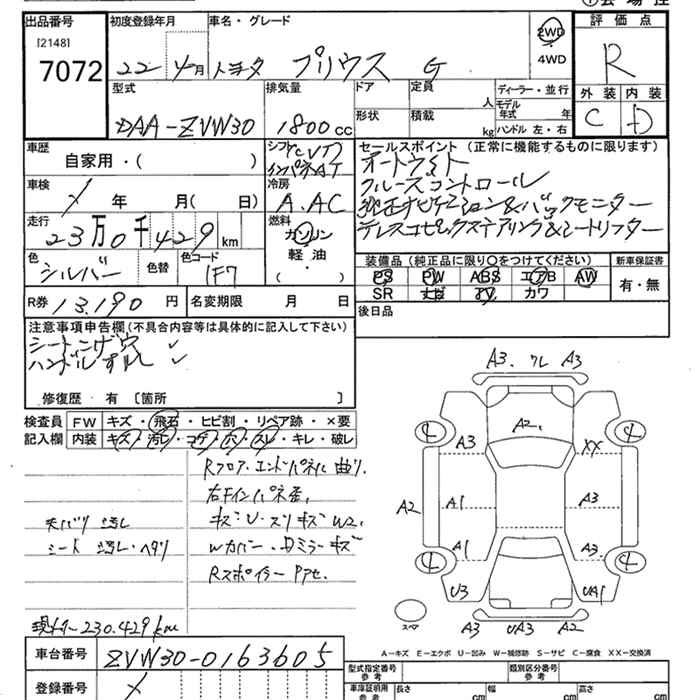 出品番号 初度登録年月 車名・グレード 2WD 評価点
[2148] 7072 22年4月 トヨタ プリウス G 4WD R
型式 排気量 ドア 定員 人 ディーラー・並行 外装 内装
DAA-ZVW30 1800cc 形状 積載 kg モデル年式 年 ハンドル 左・右 C D
車歴 シフト CVT セールスポイント (正常に機能するものに限ります)
自家用・( ) インパネAT オートライト
車検 冷房 クルーズコントロール
年 月( 日) A.AC 純正ナビゲーション&バックモニター
走行 燃料 テレスコピックステアリング&シートリフター
23万0千429km ガソリン
色 色替 色コード 軽油 装備品 (純正品に限り○をつけてください) 新車保証書
シルバー 1F7 ・ ( ) PS PW ABS エアB AW 有・無
SR ナビ TV カワ
R券 13,190円 名変期限 月 日 後日品
注意事項申告欄(不具合内容等は具体的に記入して下さい)
シートこげ穴 ✓
ハンドルすれ ✓
修復歴・有 〔箇所 〕
検査員記入欄 FW キズ・飛石・ヒビ割・リペア跡・×要
内装 キズ・汚レ・コゲ・穴・スレ・キレ・破レ
Rフロア・エンドパネル曲り、
右Fインパネ歪、
天バリ 汚レ キズ・U・スリキズ W2、
シート 汚レ・ヘタリ Wカバー・Dミラーキズ
Rスポイラー Pアセ、
現メーター 230.429km
車台番号 ZVW30-0163605
登録番号
型式指定番号 参考 類別区分番号 参考
車庫証明用 参考 長さ cm 幅 cm 高さ cm
A3. ワレ A3
A2.
4 4
A3 XX
A2 A1 A3
A1 A3
4 4
U3 UA1
スペア A3 UA3 A2
A-キズ E-エクボ U-凹み W-補修跡 S-サビ C-腐食 XX-交換済